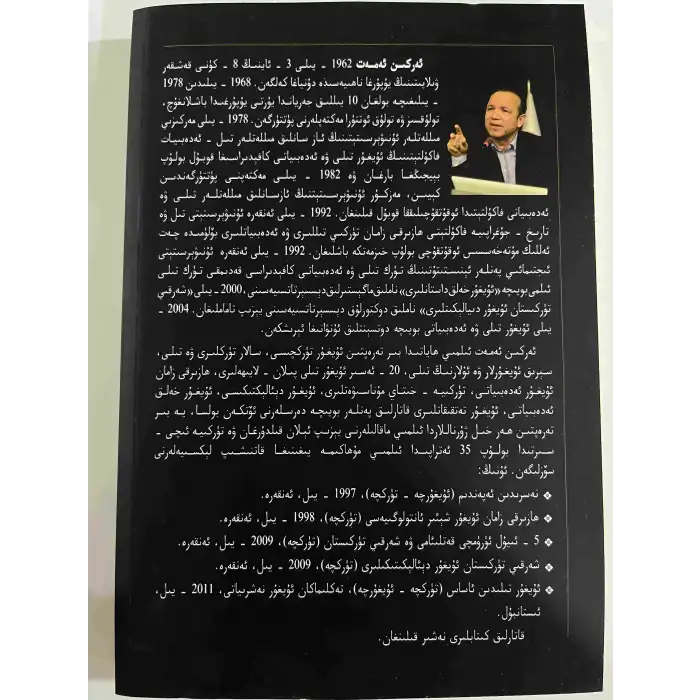 ئەركىن ئەمەت 1962 - يىلى 3 - ئاينىڭ 8 - كۈنى قەشقەر
ۋىلايىتىنىڭ يۇپۇرغا ناھىيەسىدە دۇنياغا كەلگەن. 1968 - يىلىدىن 1978
- يىلىغىچە بولغان 10 يىللىق جەرياندا يۇرتى يۇپۇرغىدا باشلانغۇچ،
تولۇقسىز ۋە تولۇق ئوتتۇرا مەكتەپلەرنى پۈتتۈرگەن. 1978 - يىلى مەركىزىي
مىللەتلەر ئۇنىۋېرسىتېتىنىڭ ئاز سانلىق مىللەتلەر تىل - ئەدەبىيات
فاكۇلتېتىنىڭ ئۇيغۇر تىلى ۋە ئەدەبىياتى كافېدىراسىغا قوبۇل بولۇپ
بېيجىڭغا بارغان ۋە 1982 - يىلى مەكتەپنى پۈتتۈرگەندىن
كېيىن، مەزكۇر ئۇنىۋېرسىتېتنىڭ ئازسانلىق مىللەتلەر تىلى ۋە
ئەدەبىياتى فاكۇلتېتىدا ئوقۇتقۇچىلىققا قوبۇل قىلىنغان. 1992 - يىلى ئەنقەرە ئۇنىۋېرسىتېتى تىل ۋە
تارىخ - جۇغراپىيە فاكۇلتېتى ھازىرقى زامان تۈركىي تىللىرى ۋە ئەدەبىياتلىرى بۆلۈمىدە چەت
ئەللىك مۇتەخەسسىس ئوقۇتقۇچى بولۇپ خىزمەتكە باشلىغان. 1992 - يىلى ئەنقەرە ئۇنىۋېرسىتېتى
ئىجتىمائىي پەنلەر ئىنىستىتۇتىنىڭ تۈرك تىلى ۋە ئەدەبىياتى كافېدىراسى قەدىمقى تۈرك تىلى
ئىلمى بويىچە «ئۇيغۇر خەلق داستانلىرى» ناملىق ماگىستىرلىق دىسسېرتاتسىيەسىنى، 2000 - يىلى «شەرقىي
تۈركىستان ئۇيغۇر دىيالېكتلىرى» ناملىق دوكتورلۇق دىسسېرتاتسىيەسىنى يېزىپ تاماملىغان. 2004 -
يىلى ئۇيغۇر تىلى ۋە ئەدەبىياتى بويىچە دوتسېنتلىق ئۇنۋانىغا ئېرىشكەن.
ئەركىن ئەمەت ئىلمىي ھاياتىدا بىر تەرەپتىن ئۇيغۇر تۈركچىسى، سالار تۈركلىرى ۋە تىلى،
سېرىق ئۇيغۇرلار ۋە ئۇلارنىڭ تىلى، 20 - ئەسىر ئۇيغۇر تىلى پىلان - لايىھەلىرى، ھازىرقى زامان
ئۇيغۇر ئەدەبىياتى، تۈركىيە - خىتاي مۇناسىۋەتلىرى، ئۇيغۇر دىئالېكتىكىسى، ئۇيغۇر خەلق
ئەدەبىياتى، ئۇيغۇر تەتقىقاتلىرى قاتارلىق پەنلەر بويىچە دەرسلەرنى ئۆتكەن بولسا، يە بىر
تەرەپتىن ھەر خىل ژۇرناللاردا ئىلمىي ماقالىلەرنى يېزىپ ئېلان قىلدۇرغان ۋە تۈركىيە ئىچى -
سىرتىدا بولۇپ 35 ئەتراپىدا ئىلمىي مۇھاكىمە يىغىنىغا قاتنىشىپ لېكسىيەلەرنى
سۆزلىگەن. ئۇنىڭ:
❖ نەسرىدىن ئەپەندىم (ئۇيغۇرچە - تۈركچە)، 1997 - يىل، ئەنقەرە.
❖ ھازىرقى زامان ئۇيغۇر شېئىر ئانتولوگىيەسى (تۈركچە)، 1998 - يىل، ئەنقەرە.
❖ 5 - ئىيۇل ئۈرۈمچى قەتلىئامى ۋە شەرقىي تۈركىستان (تۈركچە)، 2009 - يىل، ئەنقەرە.
❖ شەرقىي تۈركىستان ئۇيغۇر دىئالېكتىكىلىرى (تۈركچە)، 2009 - يىل، ئەنقەرە.
❖ ئۇيغۇر تىلىدىن ئاساس (تۈركچە - ئۇيغۇرچە)، تەكلىماكان ئۇيغۇر نەشرىياتى، 2011 - يىل،
ئىستانبۇل.
قاتارلىق كىتابلىرى نەشىر قىلىنغان.